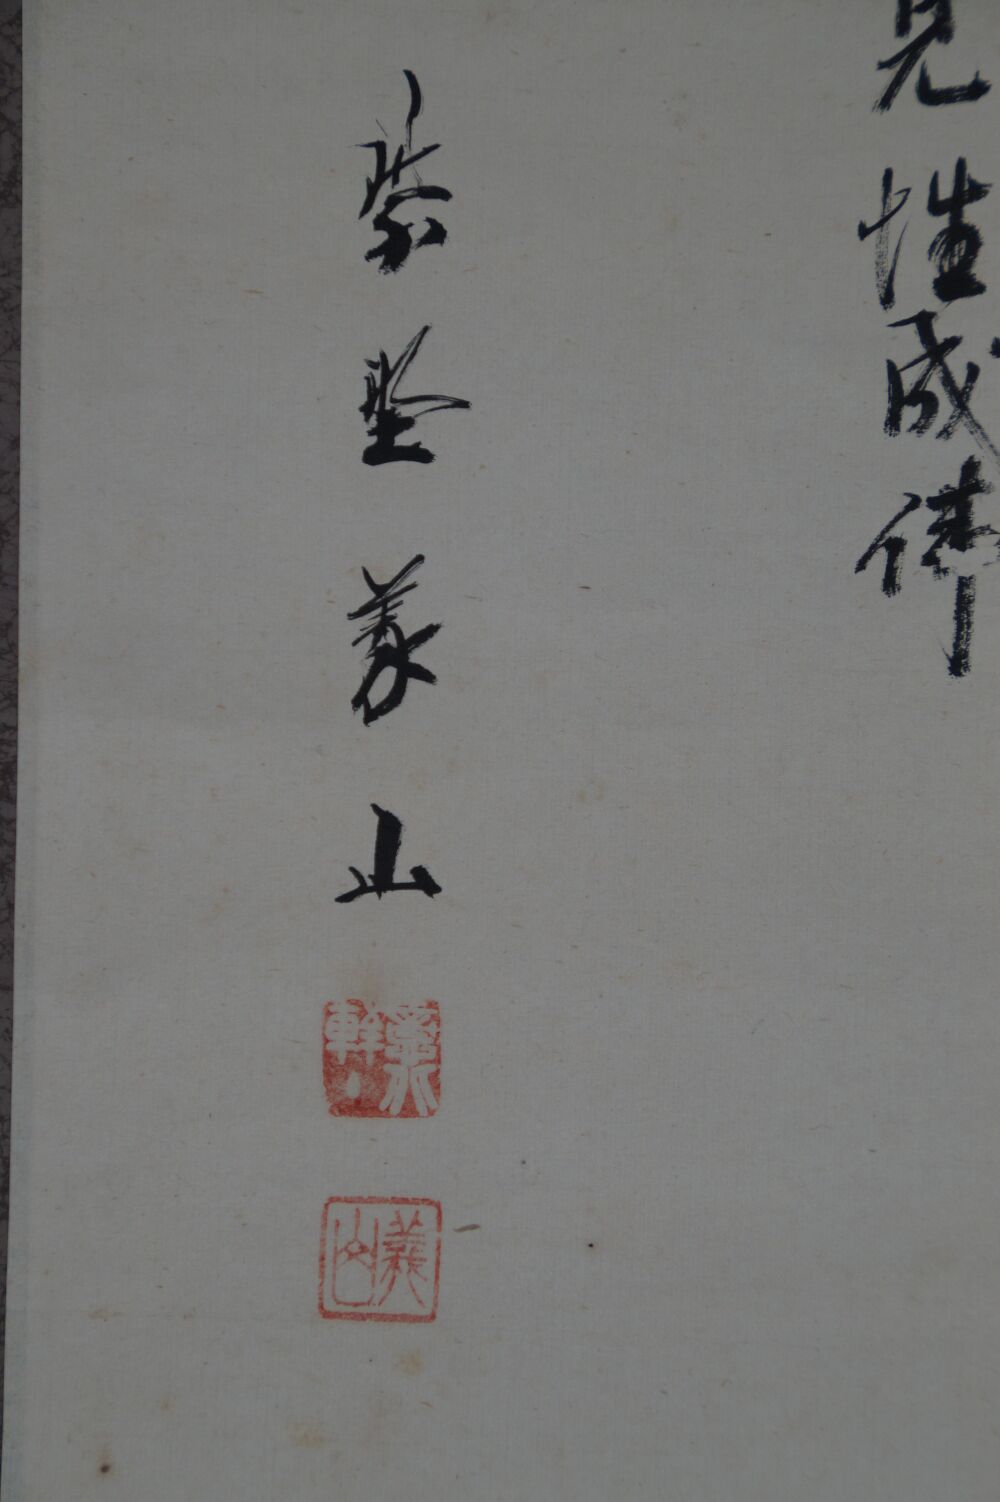 見性成佛
紫野義山
義山